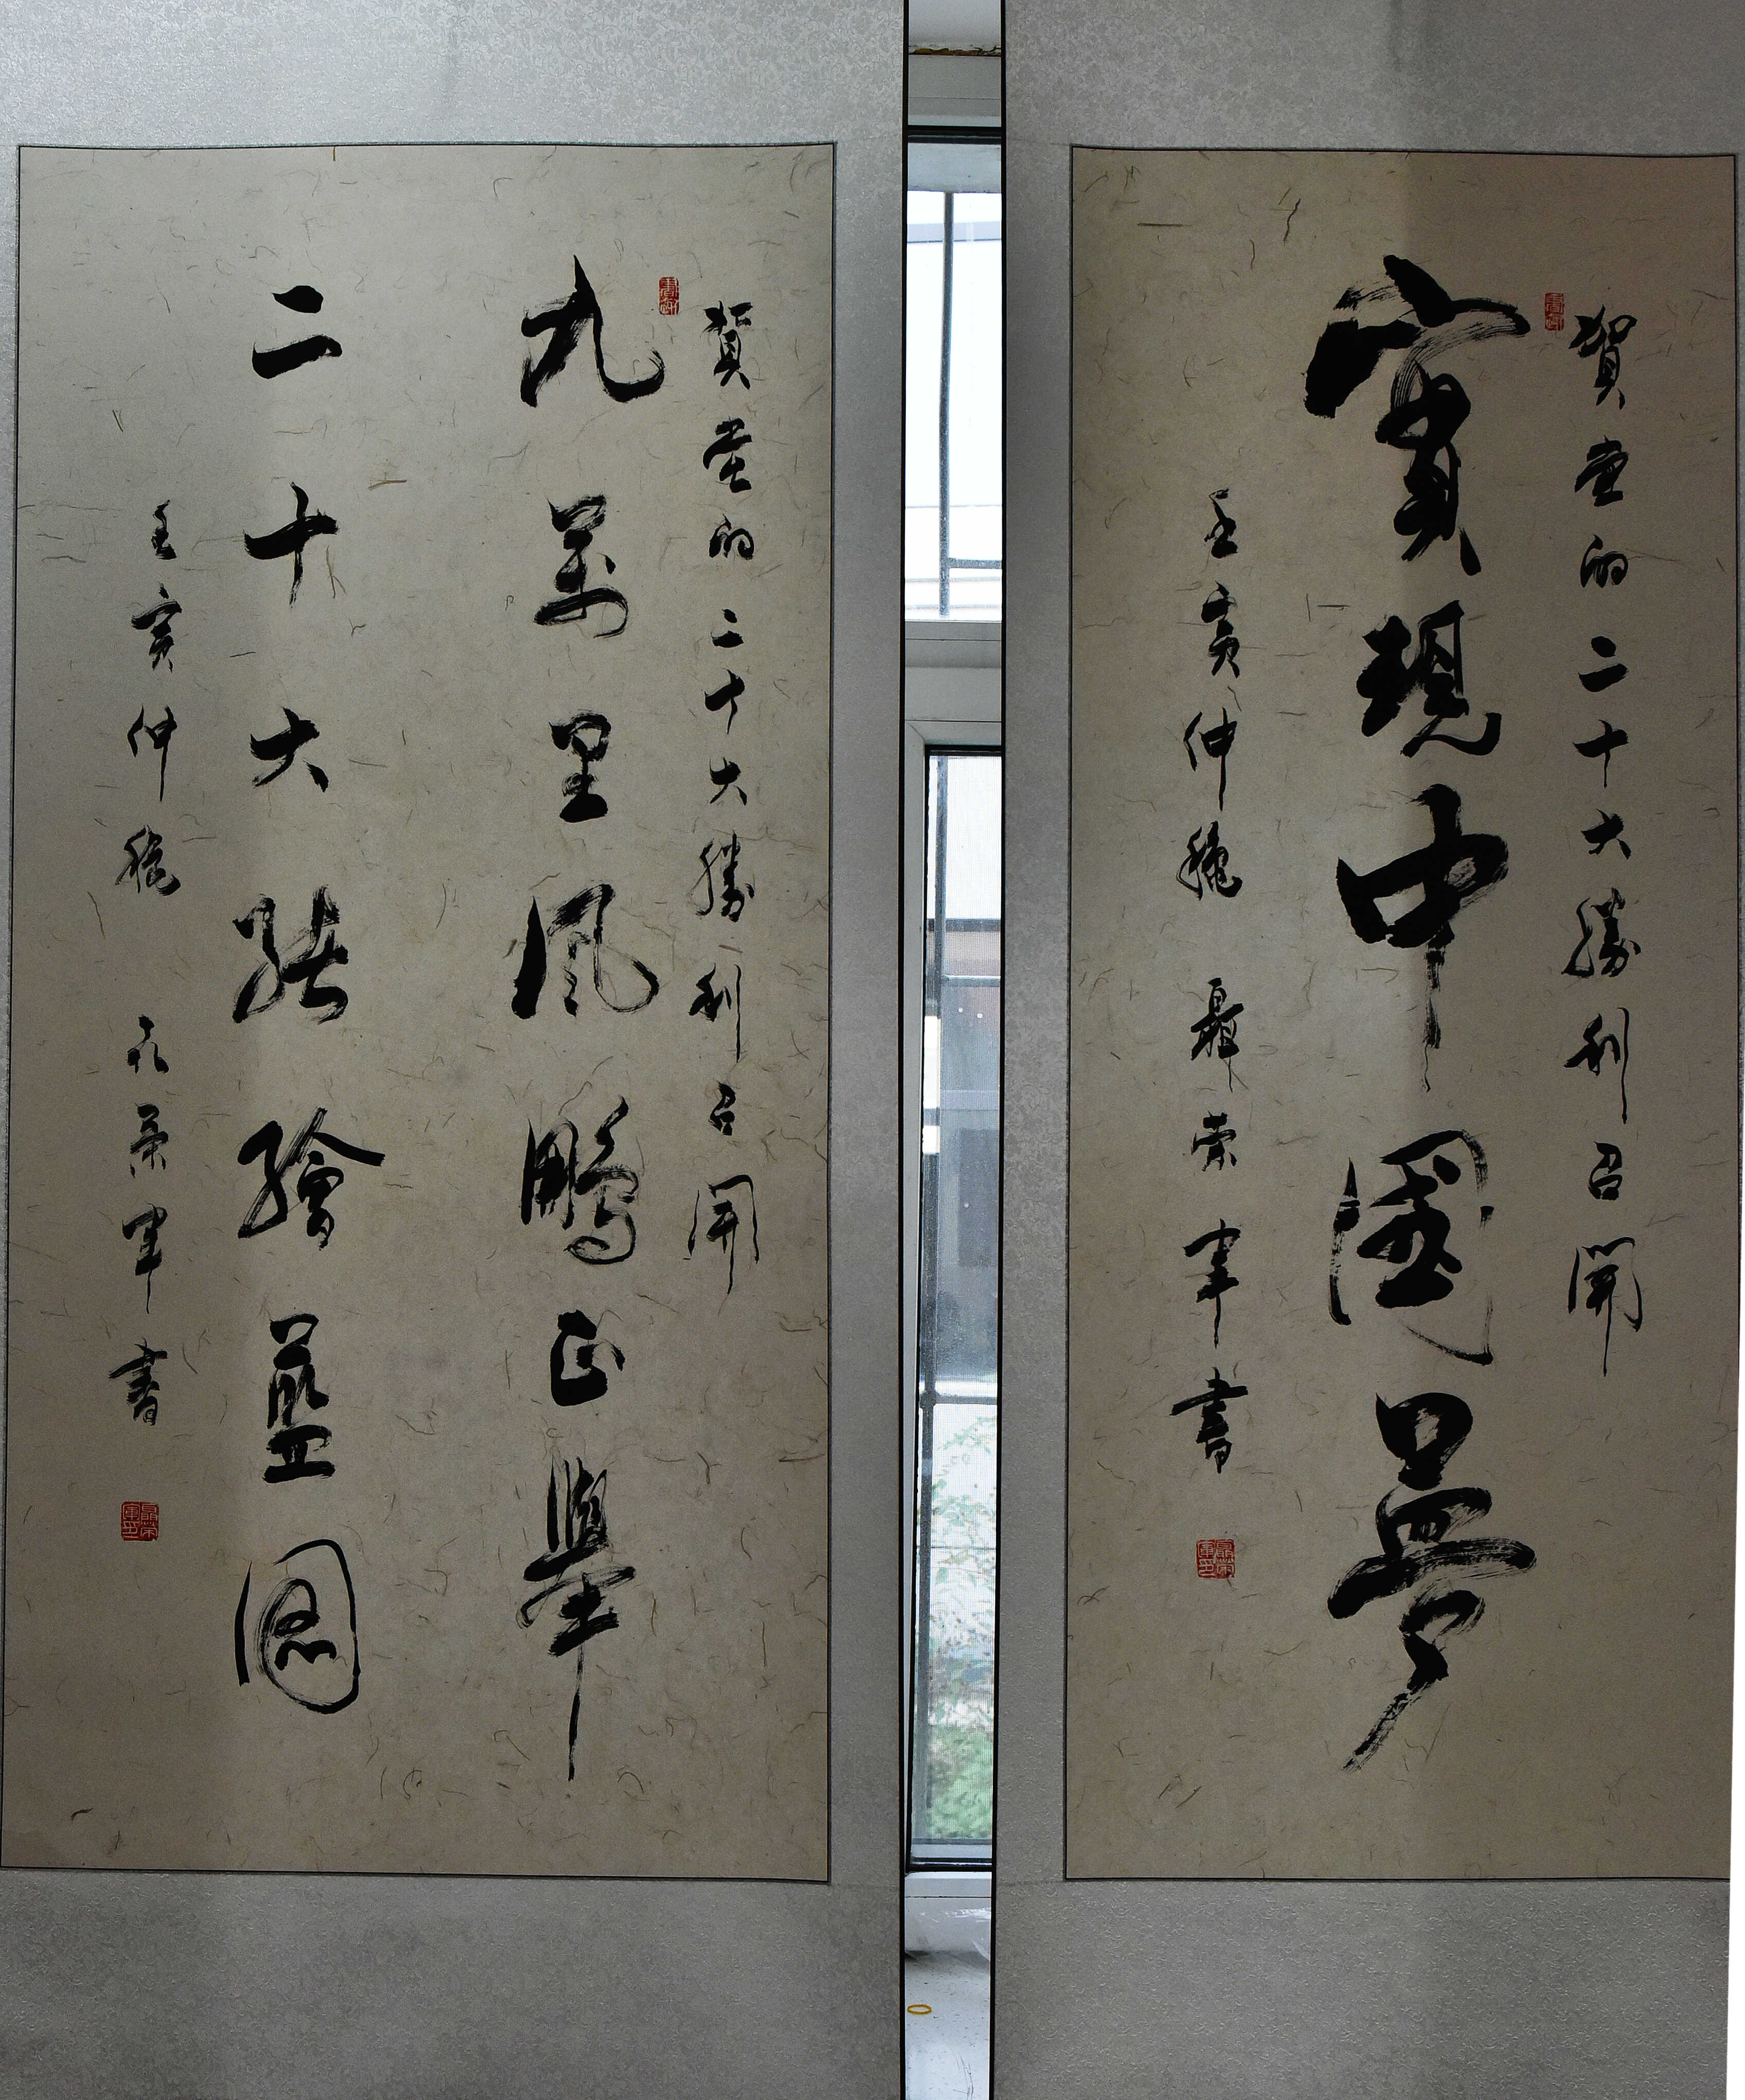 賀党的二十大勝利召開
實現中國夢
壬寅仲穐 聶荣軍書
賀党的二十大勝利召開
九萬里風鵬正舉
二十大繪藍圖
壬寅仲穐 聶荣軍書